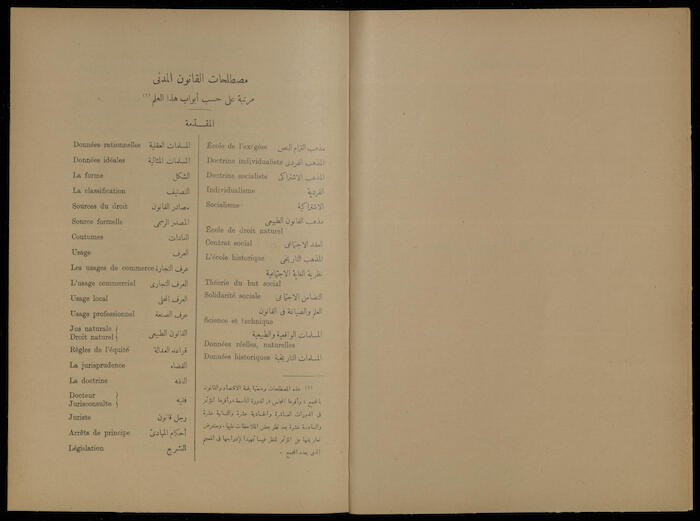 مصطلحات القانون المدنى
مرتبة على حسب أبواب هذا العلم (١)
المقدمة
École de l'exégèse مذهب التزام النص
Doctrine individualiste المذهب الفردى
Doctrine socialiste المذهب الاشتراكى
Individualisme الفردية
Socialisme الاشتراكية
مذهب القانون الطبيعى
École de droit naturel
Contrat social العقد الاجتماعى
L'école historique المذهب التاريخى
نظرية الغاية الاجتماعية
Théorie du but social
Solidarité sociale التضامن الاجتماعى
العلم والصياغة فى القانون
Science et technique
المسلمات الواقعية والطبيعية
Données réelles, naturelles
Données historiques المسلمات التاريخية
(١) هذه المصطلحات وضعتها لجنة الاقتصاد والقانون
بالمجمع، وأقرها المجلس فى الدورة التاسعة، وأقرها المؤتمر
فى الدورات العاشرة والحادية عشرة والثانية عشرة
Données rationnelles المسلمات العقلية
Données idéales المسلمات المثالية
La forme الشكل
La classification التصنيف
Sources du droit مصادر القانون
Source formelle المصدر الرسمى
Coutumes العادات
Usage العرف
Les usages de commerce عرف التجارة
L'usage commercial العرف التجارى
Usage local العرف المحلى
Usage professionnel عرف الصنعة
Jus naturale
Droit naturel القانون الطبيعى
Règles de l'équité قواعد العدالة
La jurisprudence القضاء
La doctrine الفقه
Docteur
Jurisconsulte فقيه
Juriste رجل قانون
Arrêts de principe أحكام المبادئ
Législation التشريع